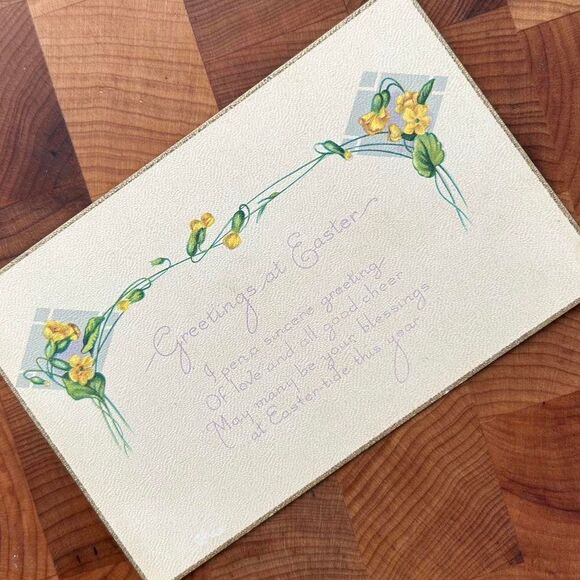 Greetings at Easter
I pen a sincere greeting
Of love and all good cheer
May many be your blessings
at Easter-tide this year